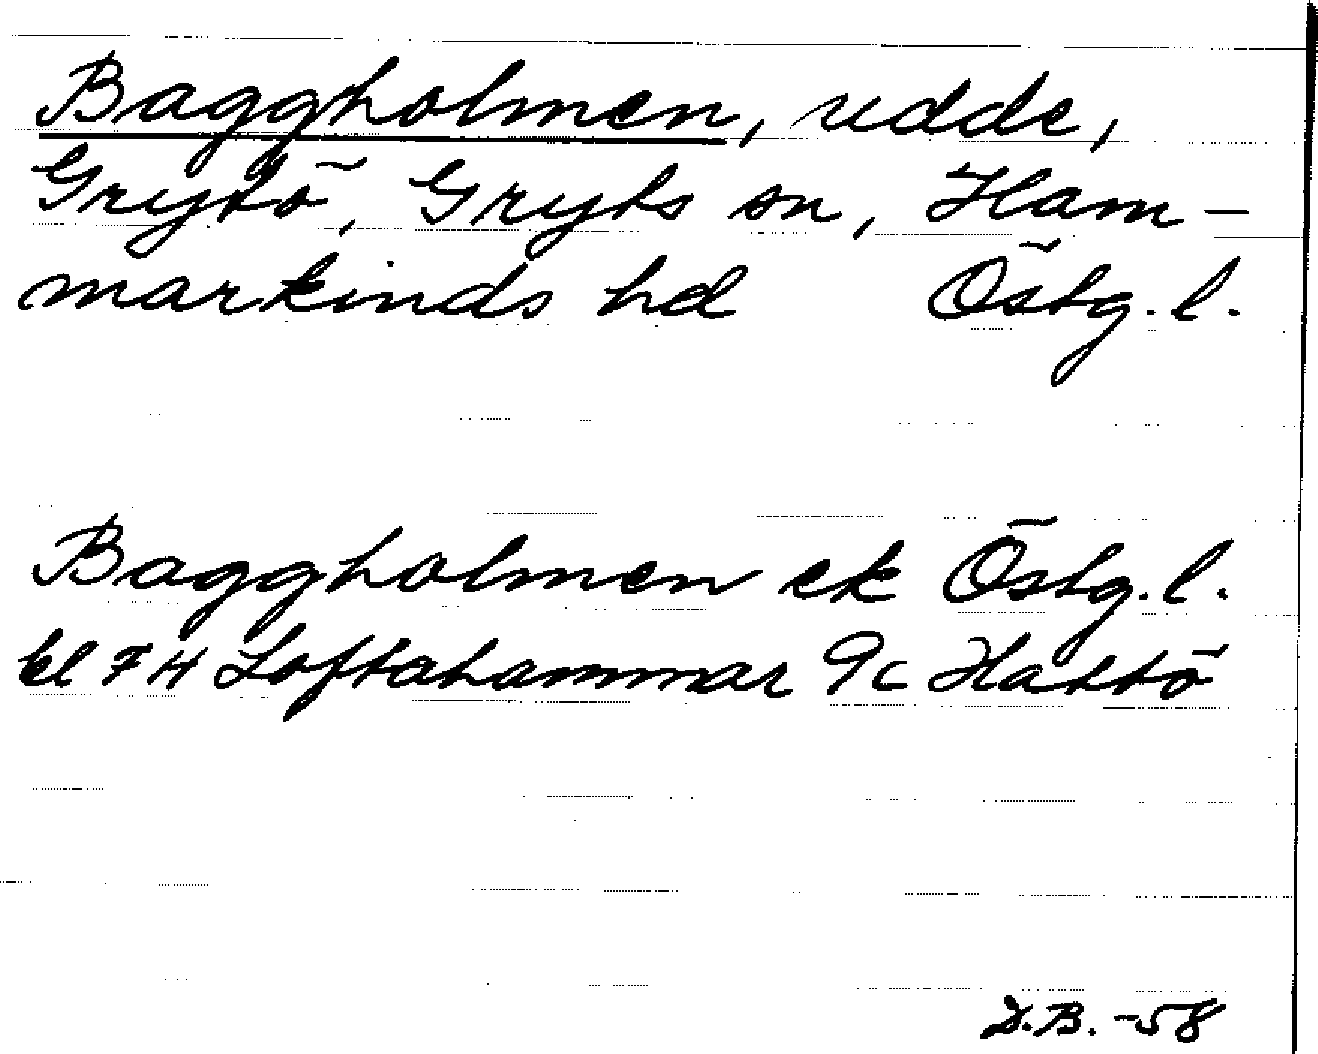 Baggholmen, udde,
Grytö, Gryts sn, Ham-
markinds hd Östg. l.
Baggholmen ek Östg. l.
bl 7 H Loftahammar 9c Hattö
D.B. -58